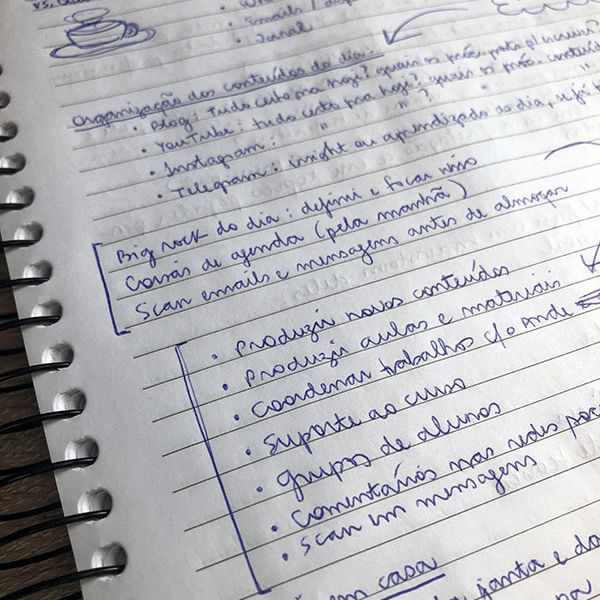 vs.
Emails /
Jornal
Organização dos conteúdos do dia:
• Blog: tudo certo pra hoje? quais os próx. posts p/ escrever?
• YouTube: tudo certo pra hoje? quais os próx. conteúdos
• Instagram: " " ? "
• Telegram: insight ou aprendizado do dia, se já
Big rock do dia: definir e focar nisso
Coisas de agenda (pela manhã)
Scan emails e mensagens antes de almoçar
• Produzir novos conteúdos
• Produzir aulas e materiais
• Coordenar trabalhos c/o Ande
• Suporte ao curso
• grupos de alunos
• Comentários nas redes
• Scan em mensagens
em casa
janta e